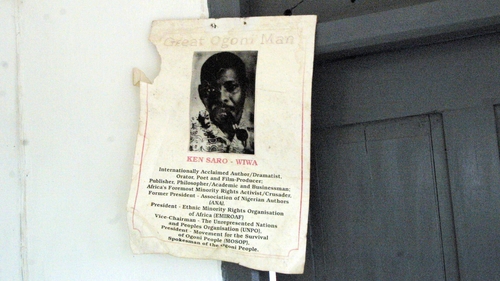 Great Ogoni Man
KEN SARO - WIWA
Internationally Acclaimed Author/Dramatist,
Orator, Poet and Film-Producer;
Publisher, Philosopher/Academic and Businessman;
Africa's Foremost Minority Rights Activist/Crusader,
Former President - Association of Nigerian Authors
(ANA).
President - Ethnic Minority Rights Organisation
of Africa (EMIROAF)
Vice-Chairman - The Unrepresented Nations
and Peoples Organisation (UNPO).
President - Movement for the Survival
of Ogoni People (MOSOP),
Spokesman of the Ogoni People.